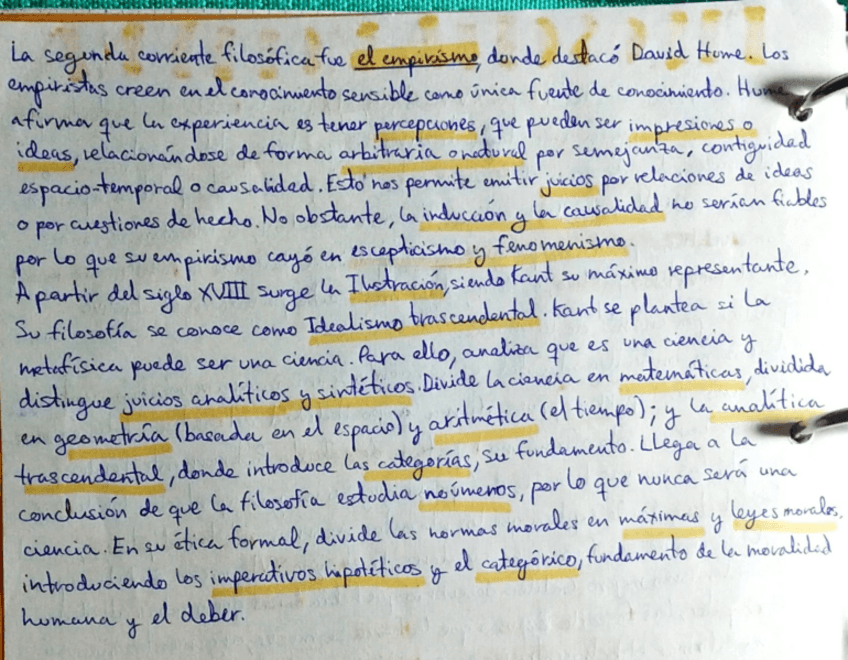 La segunda corriente filosófica fue el empirismo, donde destacó David Hume. Los
empiristas creen en el conocimiento sensible como única fuente de conocimiento. Hume
afirma que la experiencia es tener percepciones, que pueden ser impresiones o
ideas, relacionándose de forma arbitraria o natural por semejanza, contiguidad
espacio-temporal o causalidad. Esto nos permite emitir juicios por relaciones de ideas
o por cuestiones de hecho. No obstante, la inducción y la causalidad no serían fiables
por lo que su empirismo cayó en escepticismo y fenomenismo.
A partir del siglo XVIII surge la Ilustración, siendo Kant su máximo representante.
Su filosofía se conoce como Idealismo trascendental. Kant se plantea si la
metafísica puede ser una ciencia. Para ello, analiza que es una ciencia y
distingue juicios analíticos y sintéticos. Divide la ciencia en matemáticas, dividida
en geometría (basada en el espacio) y aritmética (el tiempo); y la analítica
trascendental, donde introduce las categorías, su fundamento. Llega a la
conclusión de que la filosofía estudia noúmenos, por lo que nunca será una
ciencia. En su ética formal, divide las normas morales en máximas y leyes morales,
introduciendo los imperativos hipotéticos y el categórico, fundamento de la moralidad
humana y el deber.